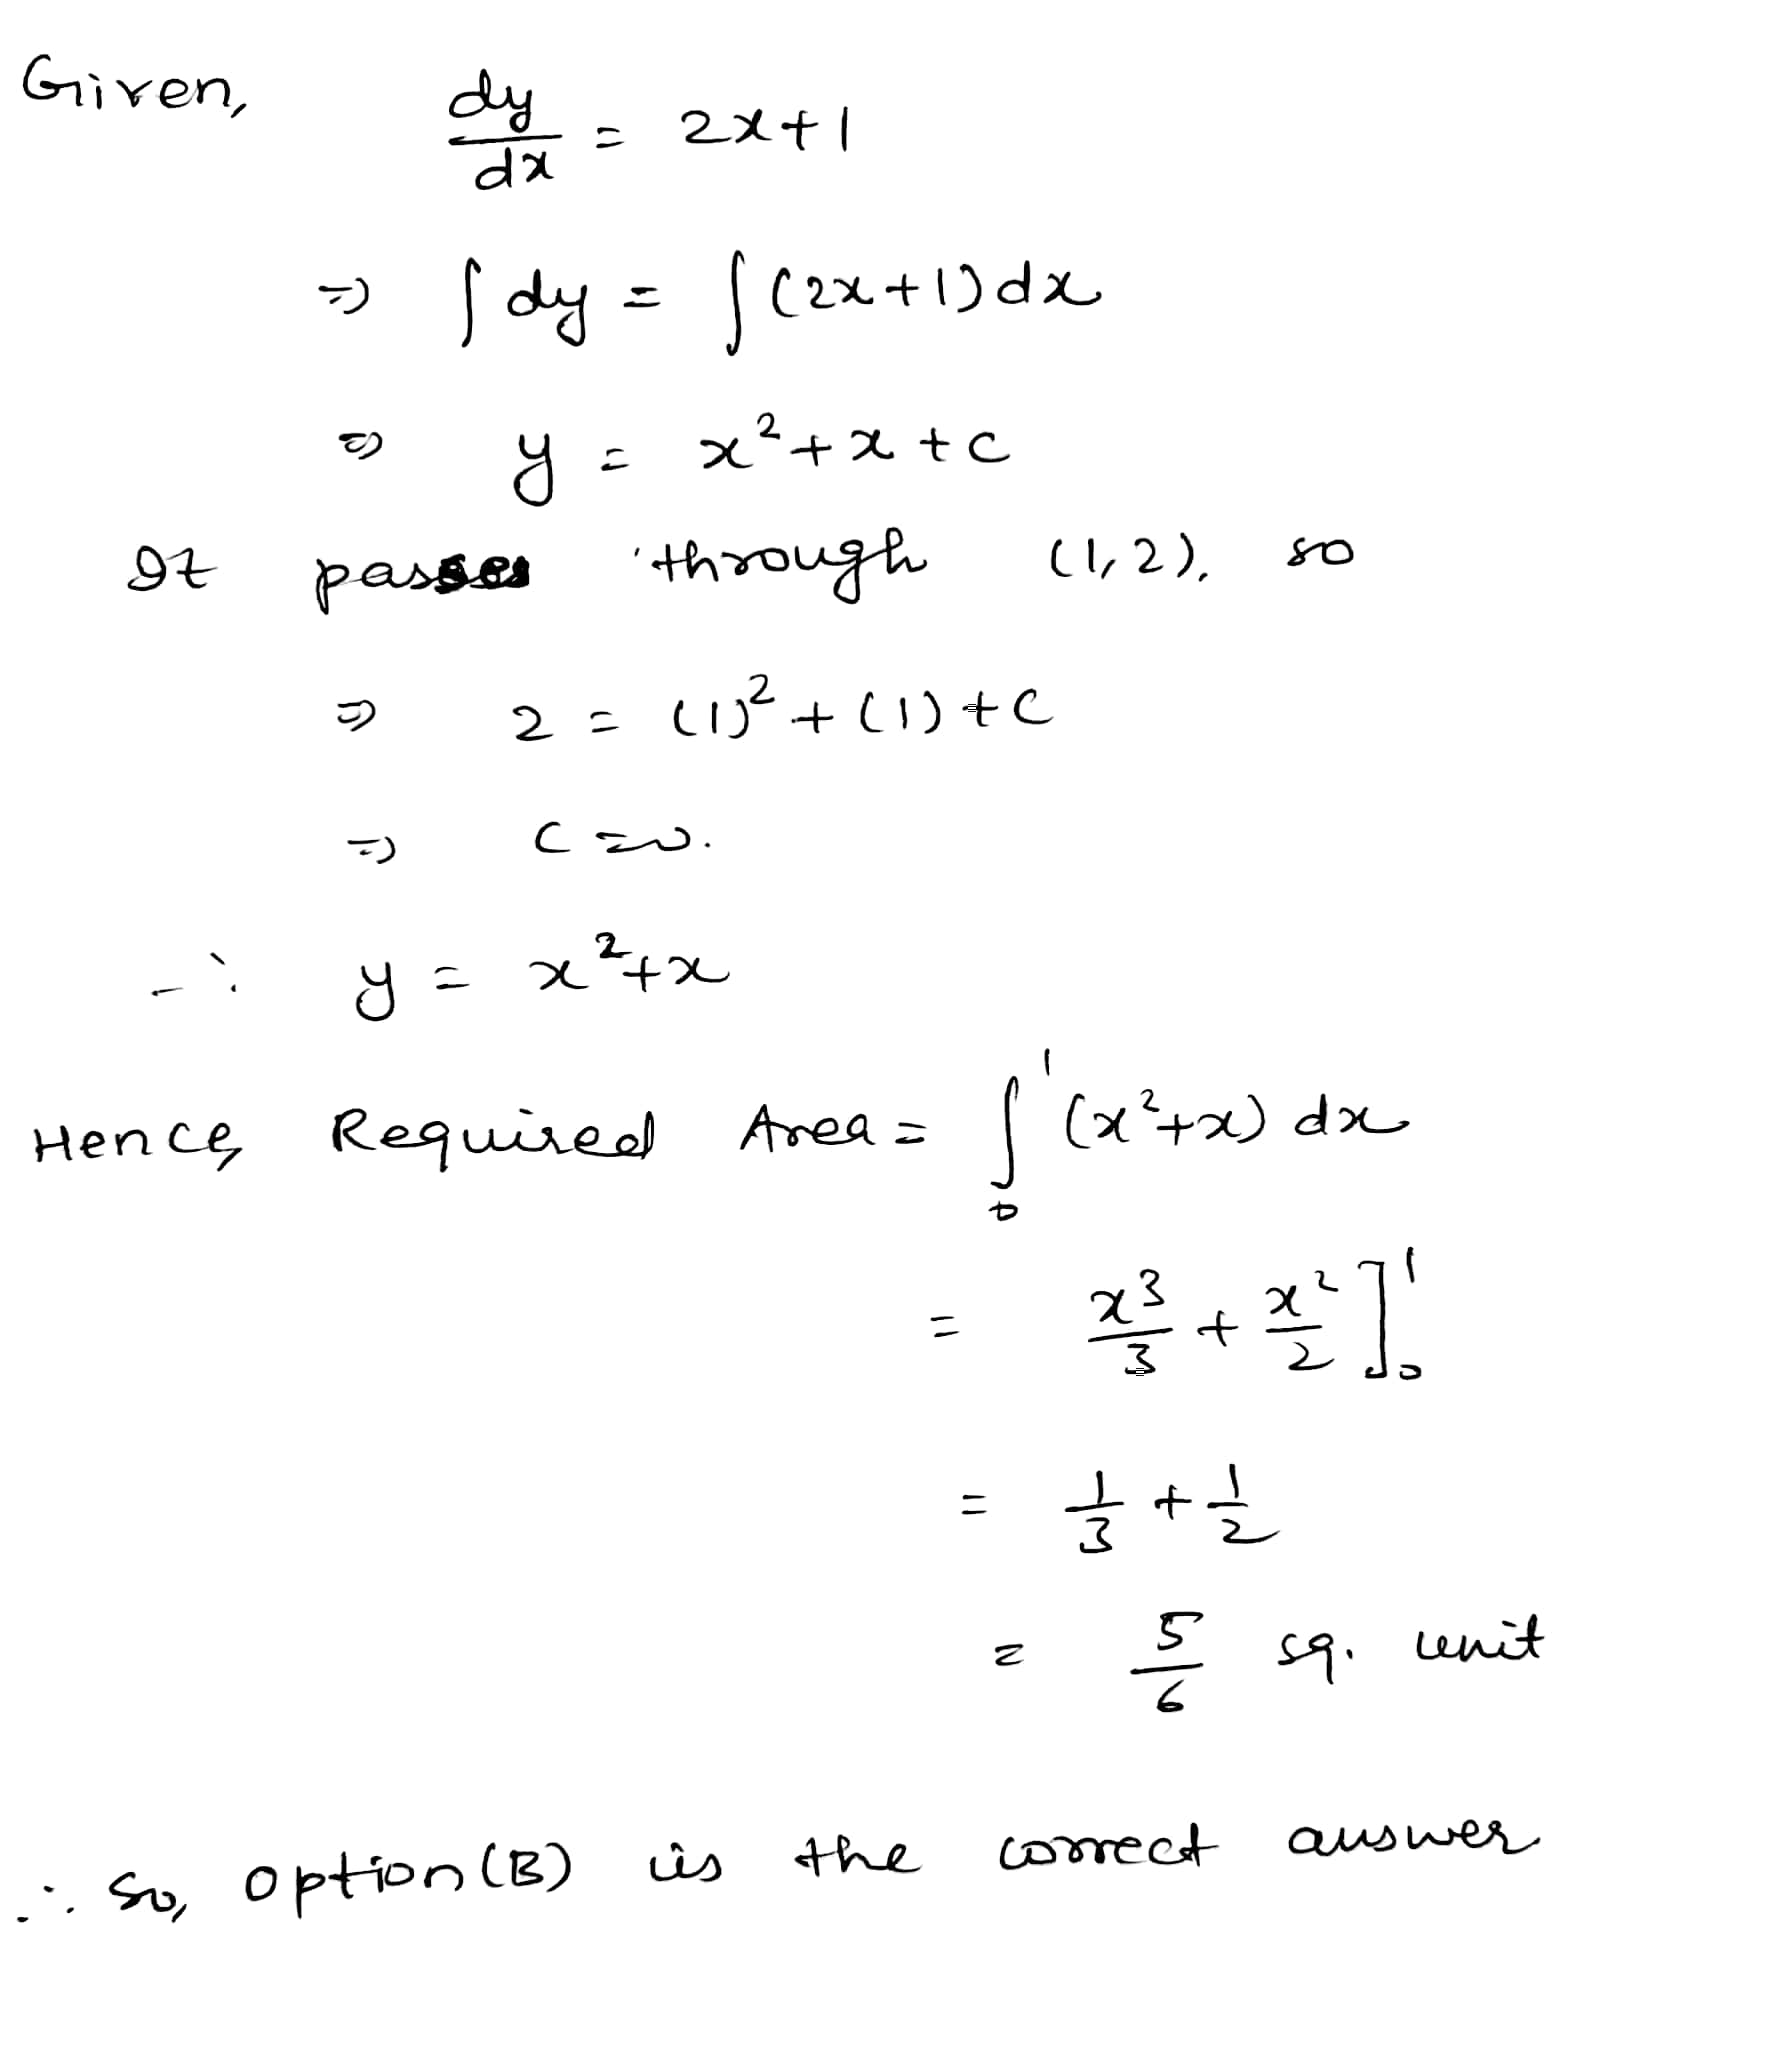 Given, dy/dx = 2x+1
⇒ ∫dy = ∫(2x+1)dx
⇒ y = x²+x+c
It passes through (1,2), so
⇒ 2 = (1)²+(1)+c
⇒ c=0.
∴ y = x²+x
Hence, Required Area = ∫₀¹(x²+x) dx
= x³/3 + x²/2]₀¹
= 1/3 + 1/2
= 5/6 sq. unit
∴ so, option(B) is the correct answer